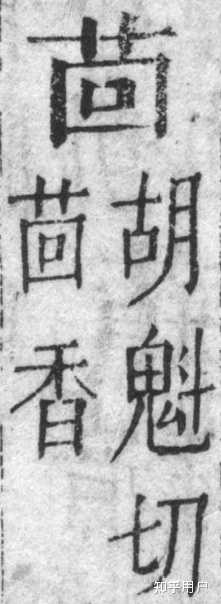 茴
胡魁切
茴香
知乎用户